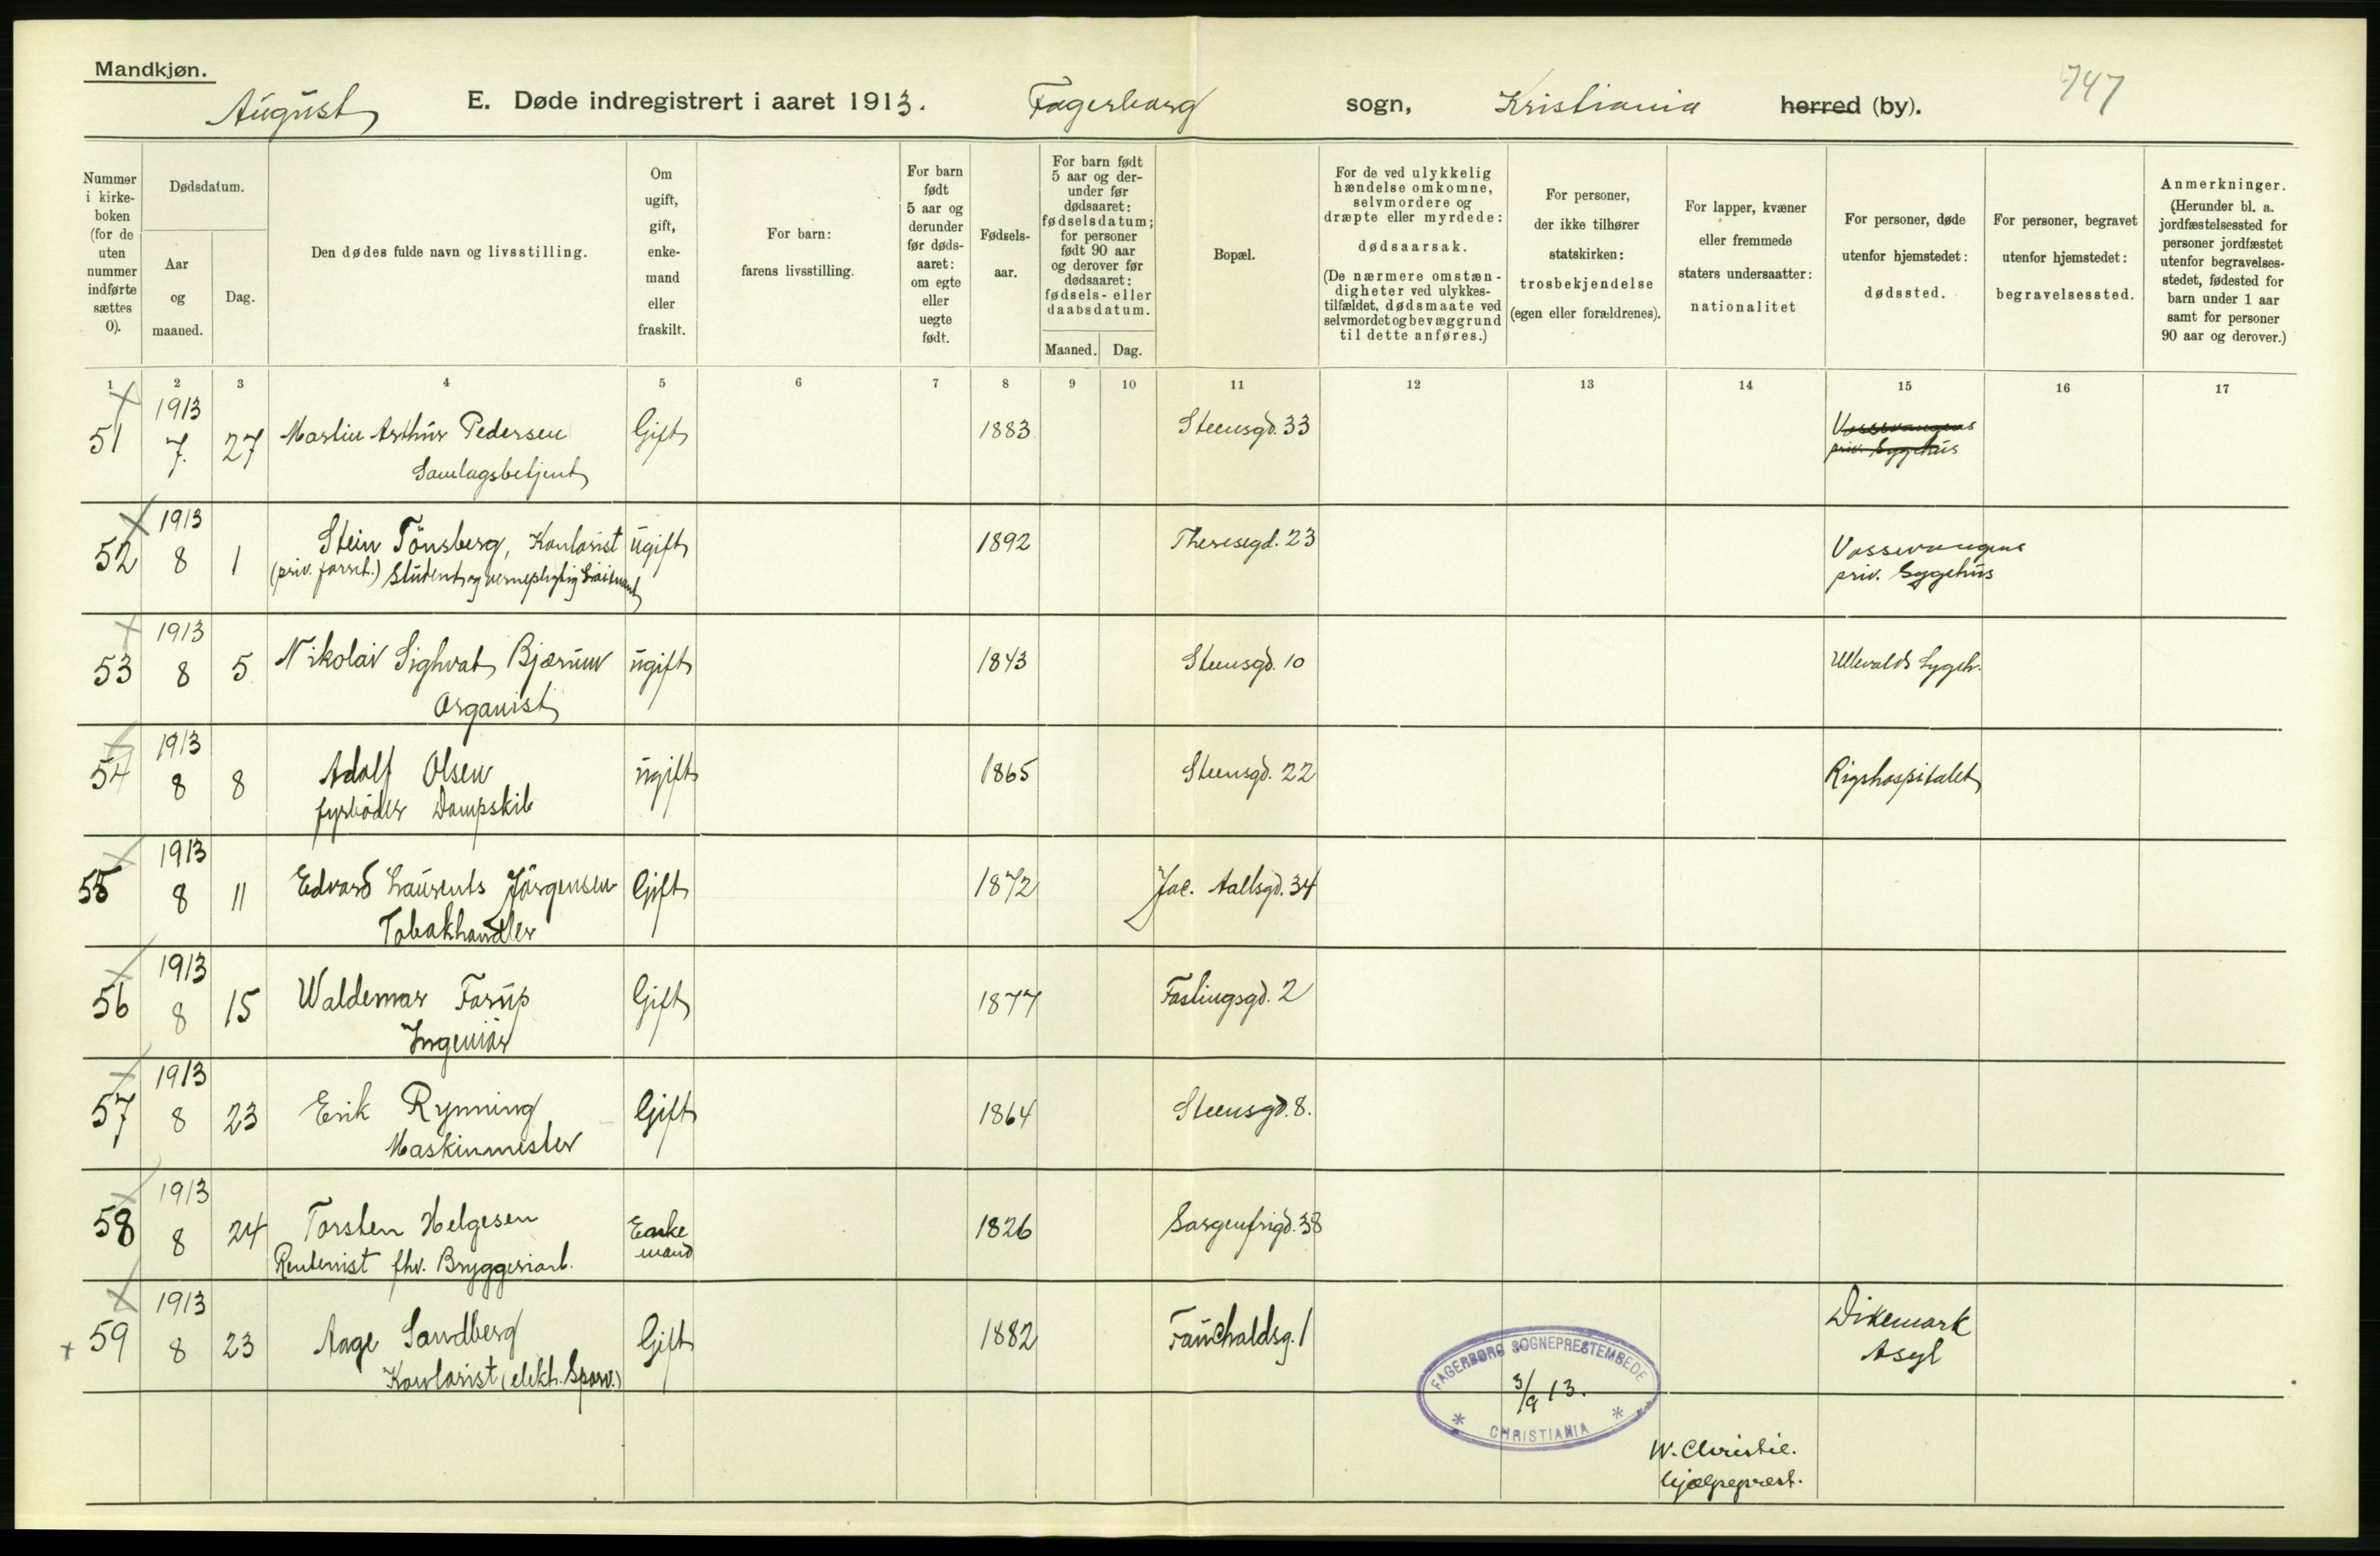 Mandkjøn.
747
August E. Døde indregistrert i aaret 1913. Fagerborg sogn, Kristiania herred (by).
Nummer i kirkeboken (for de uten nummer indførte sættes 0).
Dødsdatum.
Aar og maaned.
Dag.
Den dødes fulde navn og livsstilling.
Om ugift, gift, enkemand eller fraskilt.
For barn: farens livsstilling.
For barn født 5 aar og derunder før dødsaaret: om egte eller uegte født.
Fødselsaar.
For barn født 5 aar og derunder før dødsaaret: fødselsdatum; for personer født 90 aar og derover før dødsaaret: fødsels- eller daabsdatum.
Maaned. Dag.
Bopæl.
For de ved ulykkelig hændelse omkomne, selvmordere og dræpte eller myrdede: dødsaarsak. (De nærmere omstændigheter ved ulykkestilfældet, dødsmaate ved selvmordet og bevæggrund til dette anføres.)
For personer, der ikke tilhører statskirken: trosbekjendelse (egen eller forældrenes).
For lapper, kvæner eller fremmede staters undersaatter: nationalitet
For personer, døde utenfor hjemstedet: dødssted.
For personer, begravet utenfor hjemstedet: begravelsessted.
Anmerkninger. (Herunder bl. a. jordfæstelsessted for personer jordfæstet utenfor begravelsesstedet, fødested for barn under 1 aar samt for personer 90 aar og derover.)
1 2 3 4 5 6 7 8 9 10 11 12 13 14 15 16 17
51 1913 7. 27 Martin Arthur Pedersen Gift 1883 Steensgd. 33 Vossevangens
Samlagsbetjent priv. Sygehus
52 1913 8 1 Stein Tönsberg, Kontorist ugift 1892 Theresegd. 23 Vossevangens
(priv. forret.) Student og vernepligtig priv. Sygehus
53 1913 8 5 Nikolai Sighvat Bjærum ugift 1843 Steensgd. 10 Ullevalds Sygeh.
Organist
54 1913 8 8 Adolf Olsen ugift 1865 Steensgd. 22 Rigshospitalet
fyrböder Dampskib
55 1913 8 11 Edvard Laurents Jörgensen Gift 1872 Jac. Aallsgd. 34
Tobakhandler
56 1913 8 15 Waldemar Farup Gift 1877 Fastingsgd. 2
Ingeniör
57 1913 8 23 Erik Rynning Gift 1864 Steensgd. 8.
Maskinmester
58 1913 8 24 Torsten Helgesen Enkemand 1826 Sorgenfrigd. 38
Rentenist fhv. Bryggeriarb.
+ 59 1913 8 23 Aage Sandberg Gift 1882 Fauchaldsg. 1 Dikemark
Kontorist (elekt. Sporv.) Asyl
FAGERBORG SOGNEPRESTEMBEDE
3/9 13.
* CHRISTIANIA *
W. Christie.
hjælpeprest.